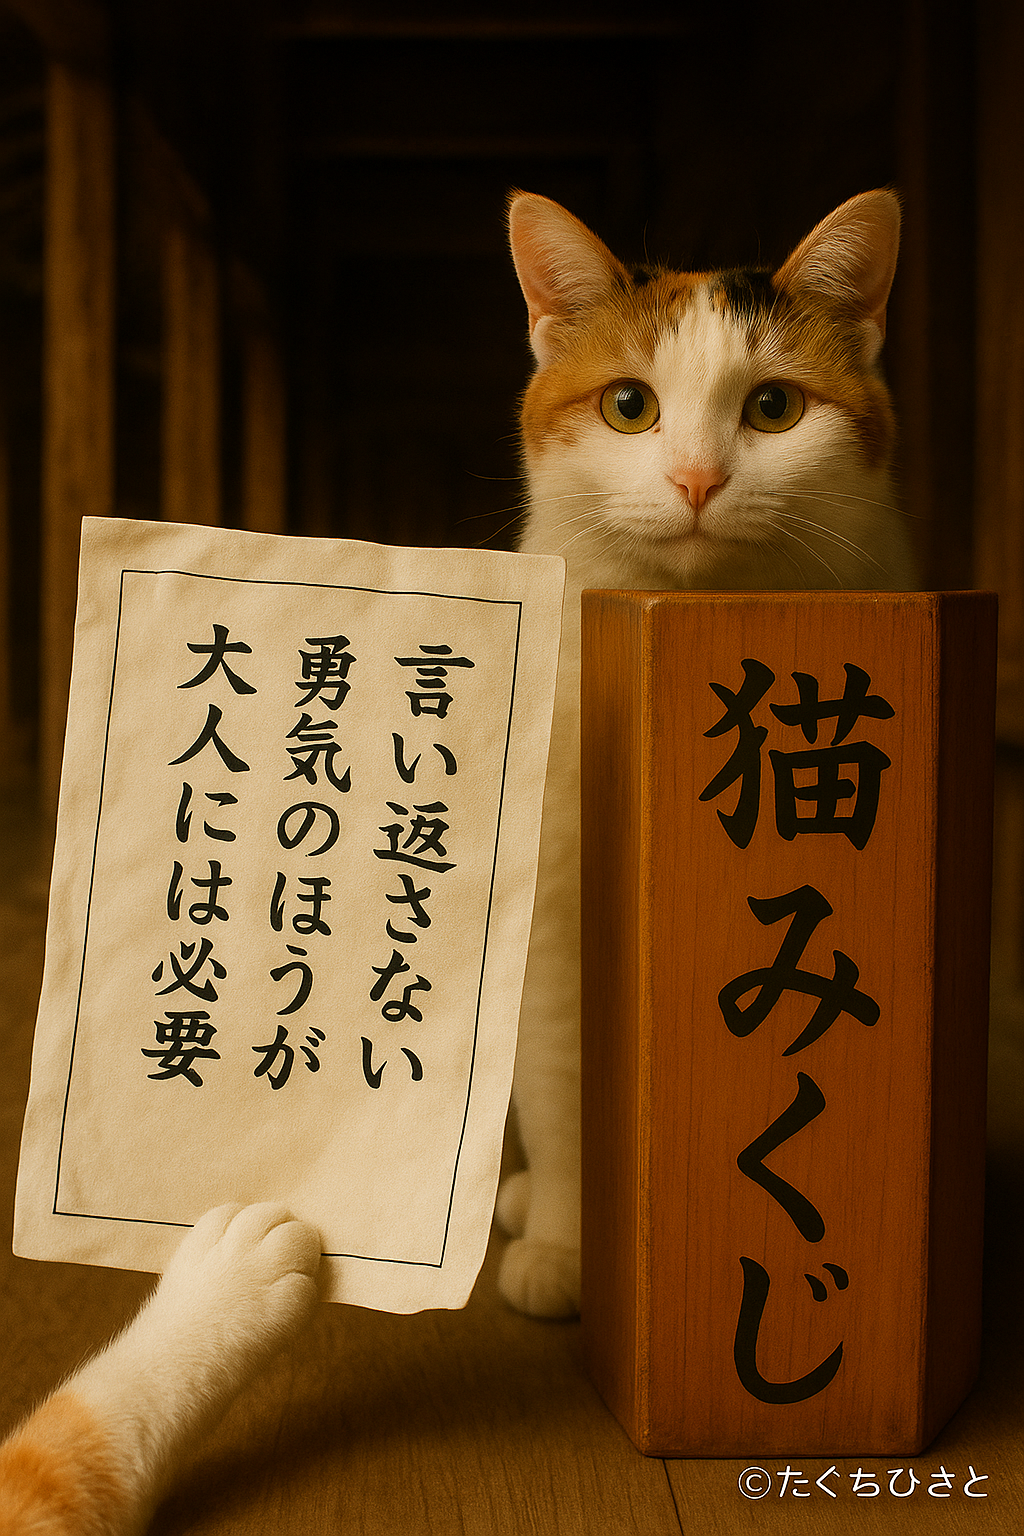 言い返さない
勇気のほうが
大人には必要
猫みくじ
©たぐちひさと